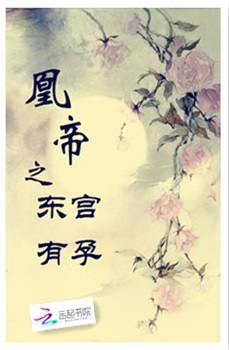 凰
帝
之
东宫
有孕
云起书院